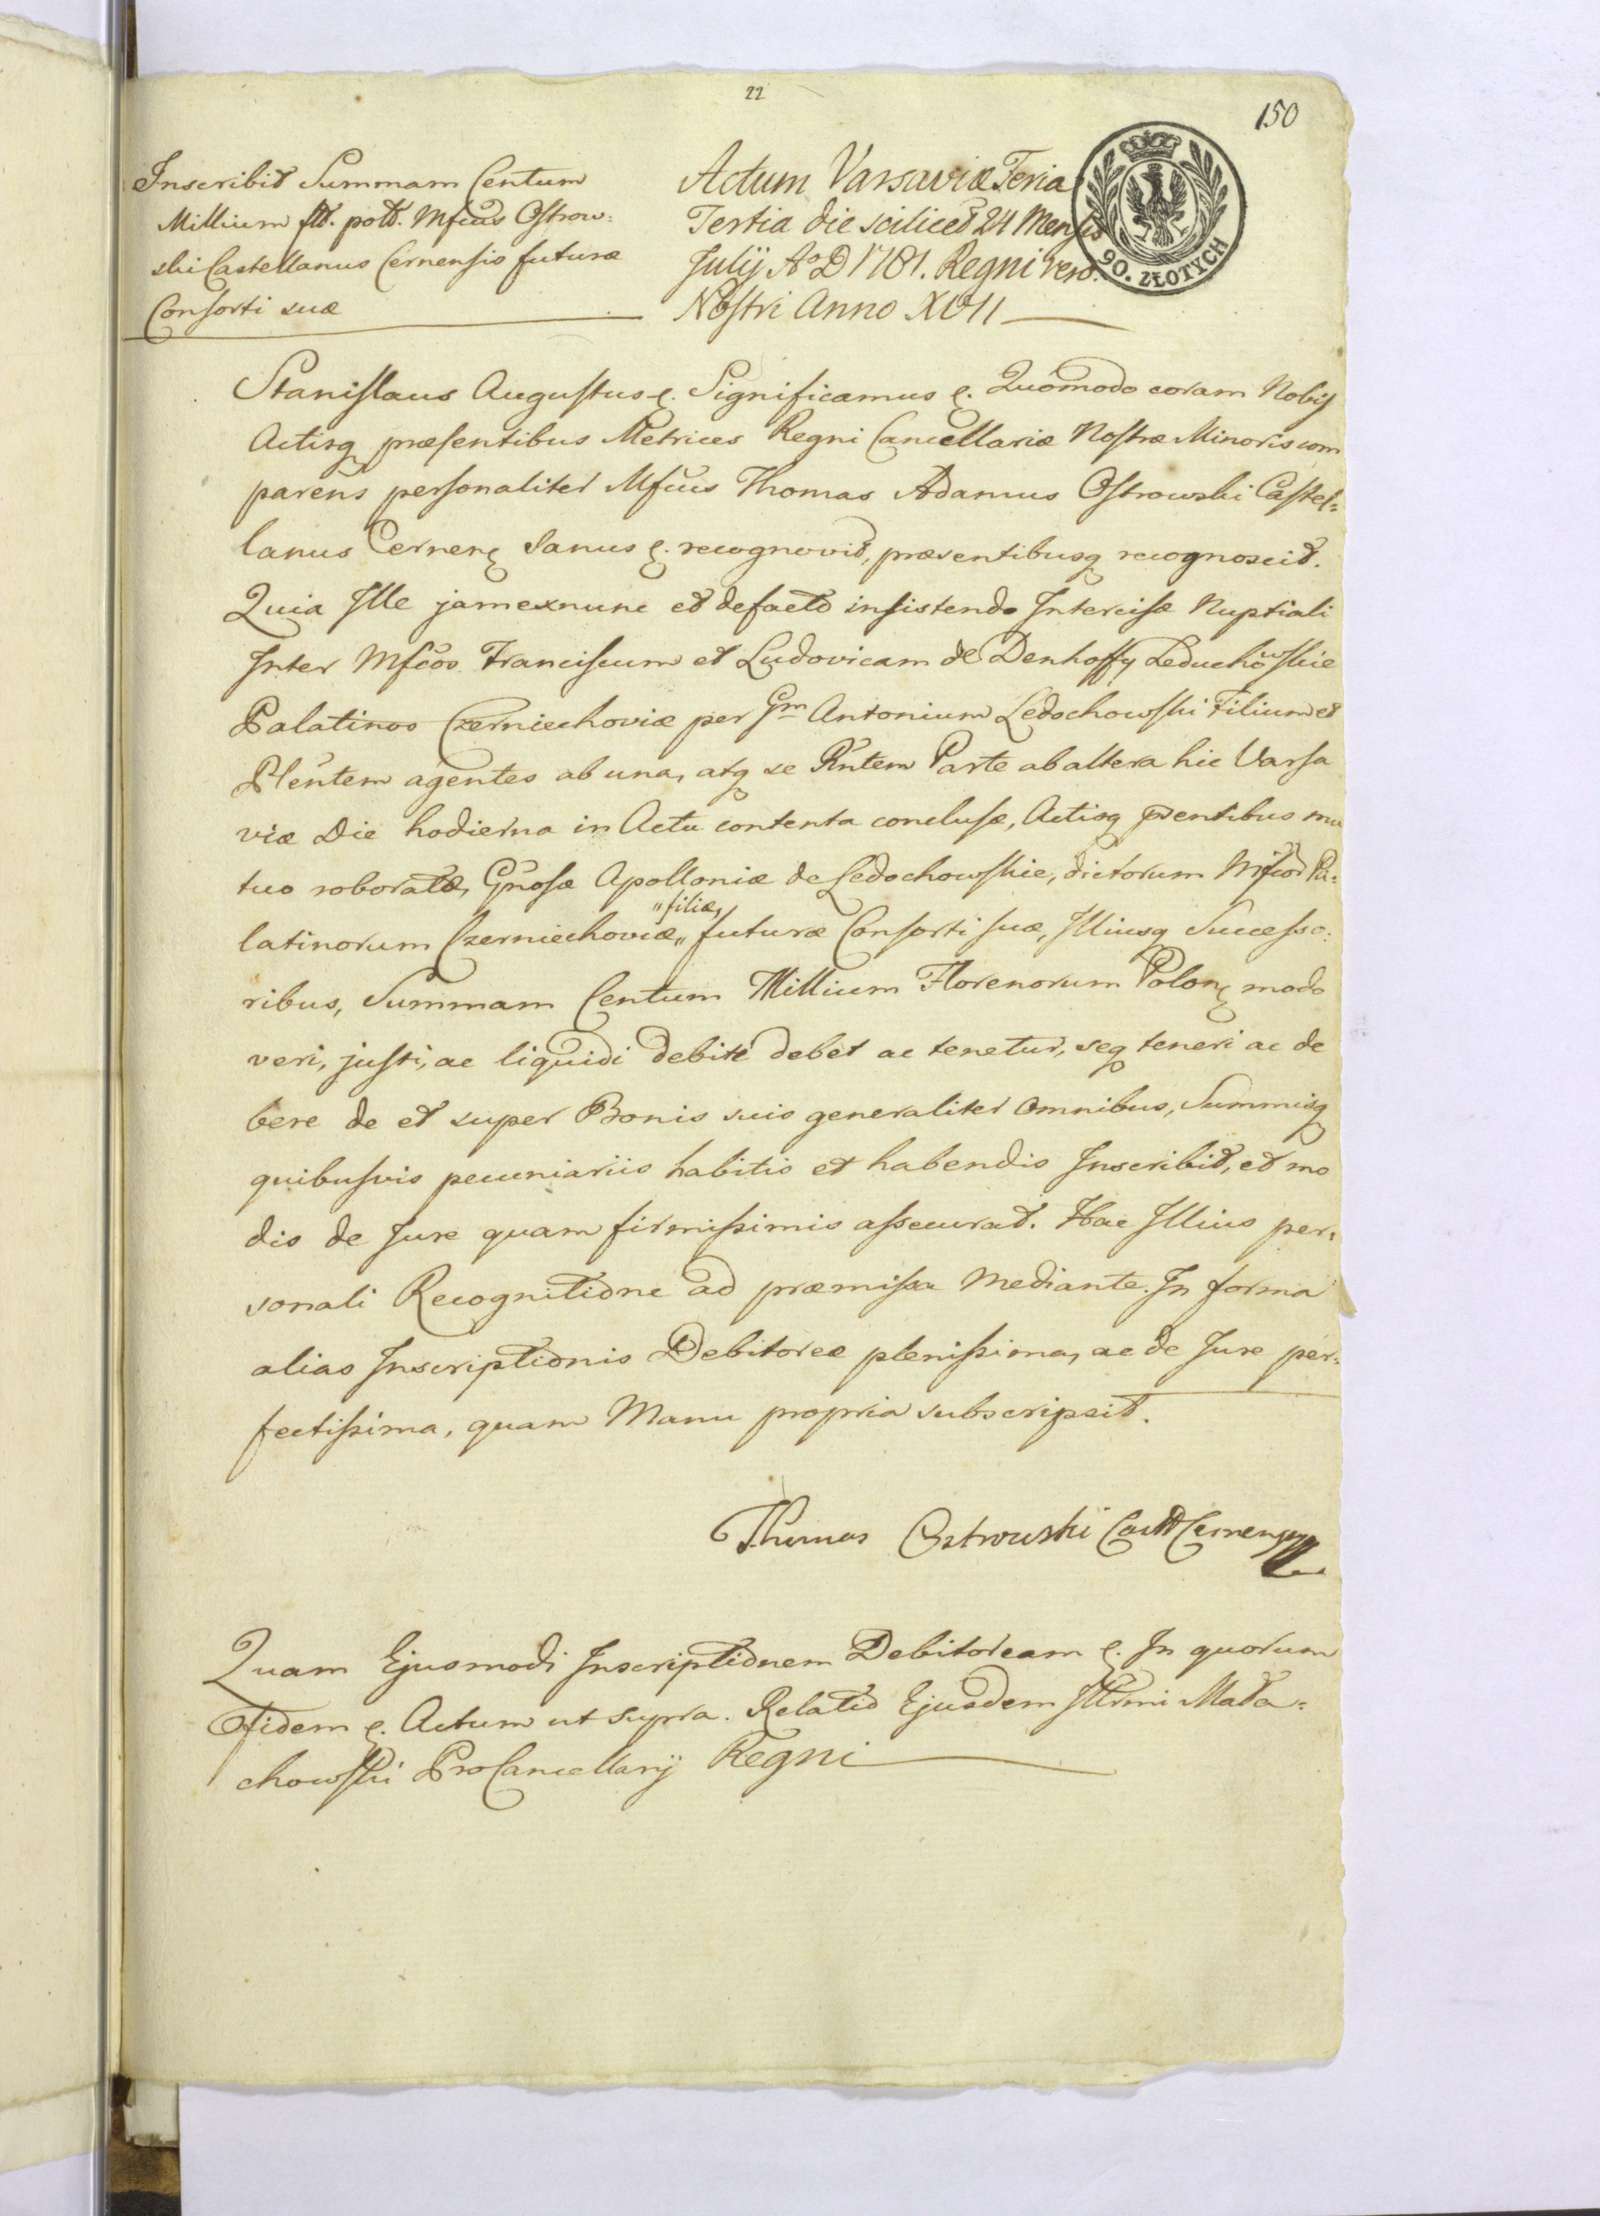 22
150
Inscribit Summam Centum
Millium flt. polt. Mfcus Ostrow:
ski Castellanus Cernensis futuræ
Consorti suæ
Actum Varsaviæ Feria
Tertia die scilicet 24 Mensis
Julij Ao D 1781. Regni vero.
Nostri Anno XVII
90. ZŁOTYCH
Stanislaus Augustus &. Significamus &. Quomodo coram Nobis
Actisq præsentibus Metrices Regni Cancellariæ Nostræ Minoris com
parens personaliter Mfcus Thomas Adamus Ostrowski Castel=
lanus Cernen. sanus &. recognovit, præsentibusq recognoscit.
Quia Ille jam exnunc et defacto insistendo Intercisæ Nuptiali
Inter Mfcos Franciscum et Ludovicam de Denhoffy Leduchowskie
Palatinos Czerniechoviæ per Gm Antonium Ledochowski Filium et
Plentem agentes ab una, atq se Rntem Parte ab altera hic Varsa
viæ Die hodierna in Actu contenta conclusæ, Actisq pentibus mu
tuo roboratæ, Gnosæ Apolloniæ de Ledochowskie, dictorum Mfcor Pa=
latinorum Czerniechoviæ „ filiæ, „ futuræ Consorti suæ, Illiusq Successo:
ribus, Summam Centum Millium Florenorum Polon. modo
veri, justi, ac liquidi debiti debet ac tenetur, seq teneri ac de
bere de et super Bonis suis generaliter omnibus, Summisq
quibusvis pecuniariis habitis et habendis Inscribit, et mo
dis de Jure quam firmissimis assecurat. Hac Illius per=
sonali Recognitione ad præmissa Mediante. In forma
alias Inscriptionis Debitoreæ plenissima, ac de Jure per=
fectissima, quam Manu propria subscripsit.
Thomas Ostrowski Castt Cernens
Quam Ejusmodi Inscriptionem Debitoream &. In quorum
Fidem &. Actum ut supra. Relatio Ejusdem Illrmi Mała=
chowski ProCancellarij Regni